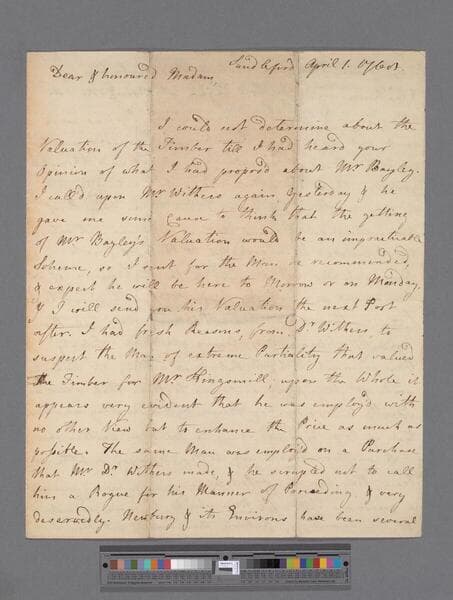 Sandleford April 1. 1760.
Dear & honoured Madam
I could not determine about the
Valuation of the Timber till I had heard your
Opinion of what I had propos'd about Mr Bayley.
I call'd upon Mr Withers again Yesterday & he
gave me some Cause to think that the getting
of Mr Bayley's Valuation would be an impracticable
Scheme, so I sent for the Man he recommended,
& expect he will be here to Morrow or on Monday,
& I will send you his Valuation the next Post
after. I had fresh Reasons from Dr Withers to
suspect the Man of extreme Partiality that valued
the Timber for Mr Kingsmill; upon the Whole it
appears very evident that he was employ'd with
no other View but to enhance the Price as much as
possible. The same Man was employ'd on a Purchase
that Mr Dr Withers made, & he scrupled not to call
him a Rogue for his Manner of Proceeding & very
deservedly. Newbury & its Environs have been several